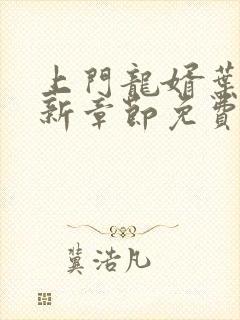 上門龍婿葉
新章節免費
冀浩凡